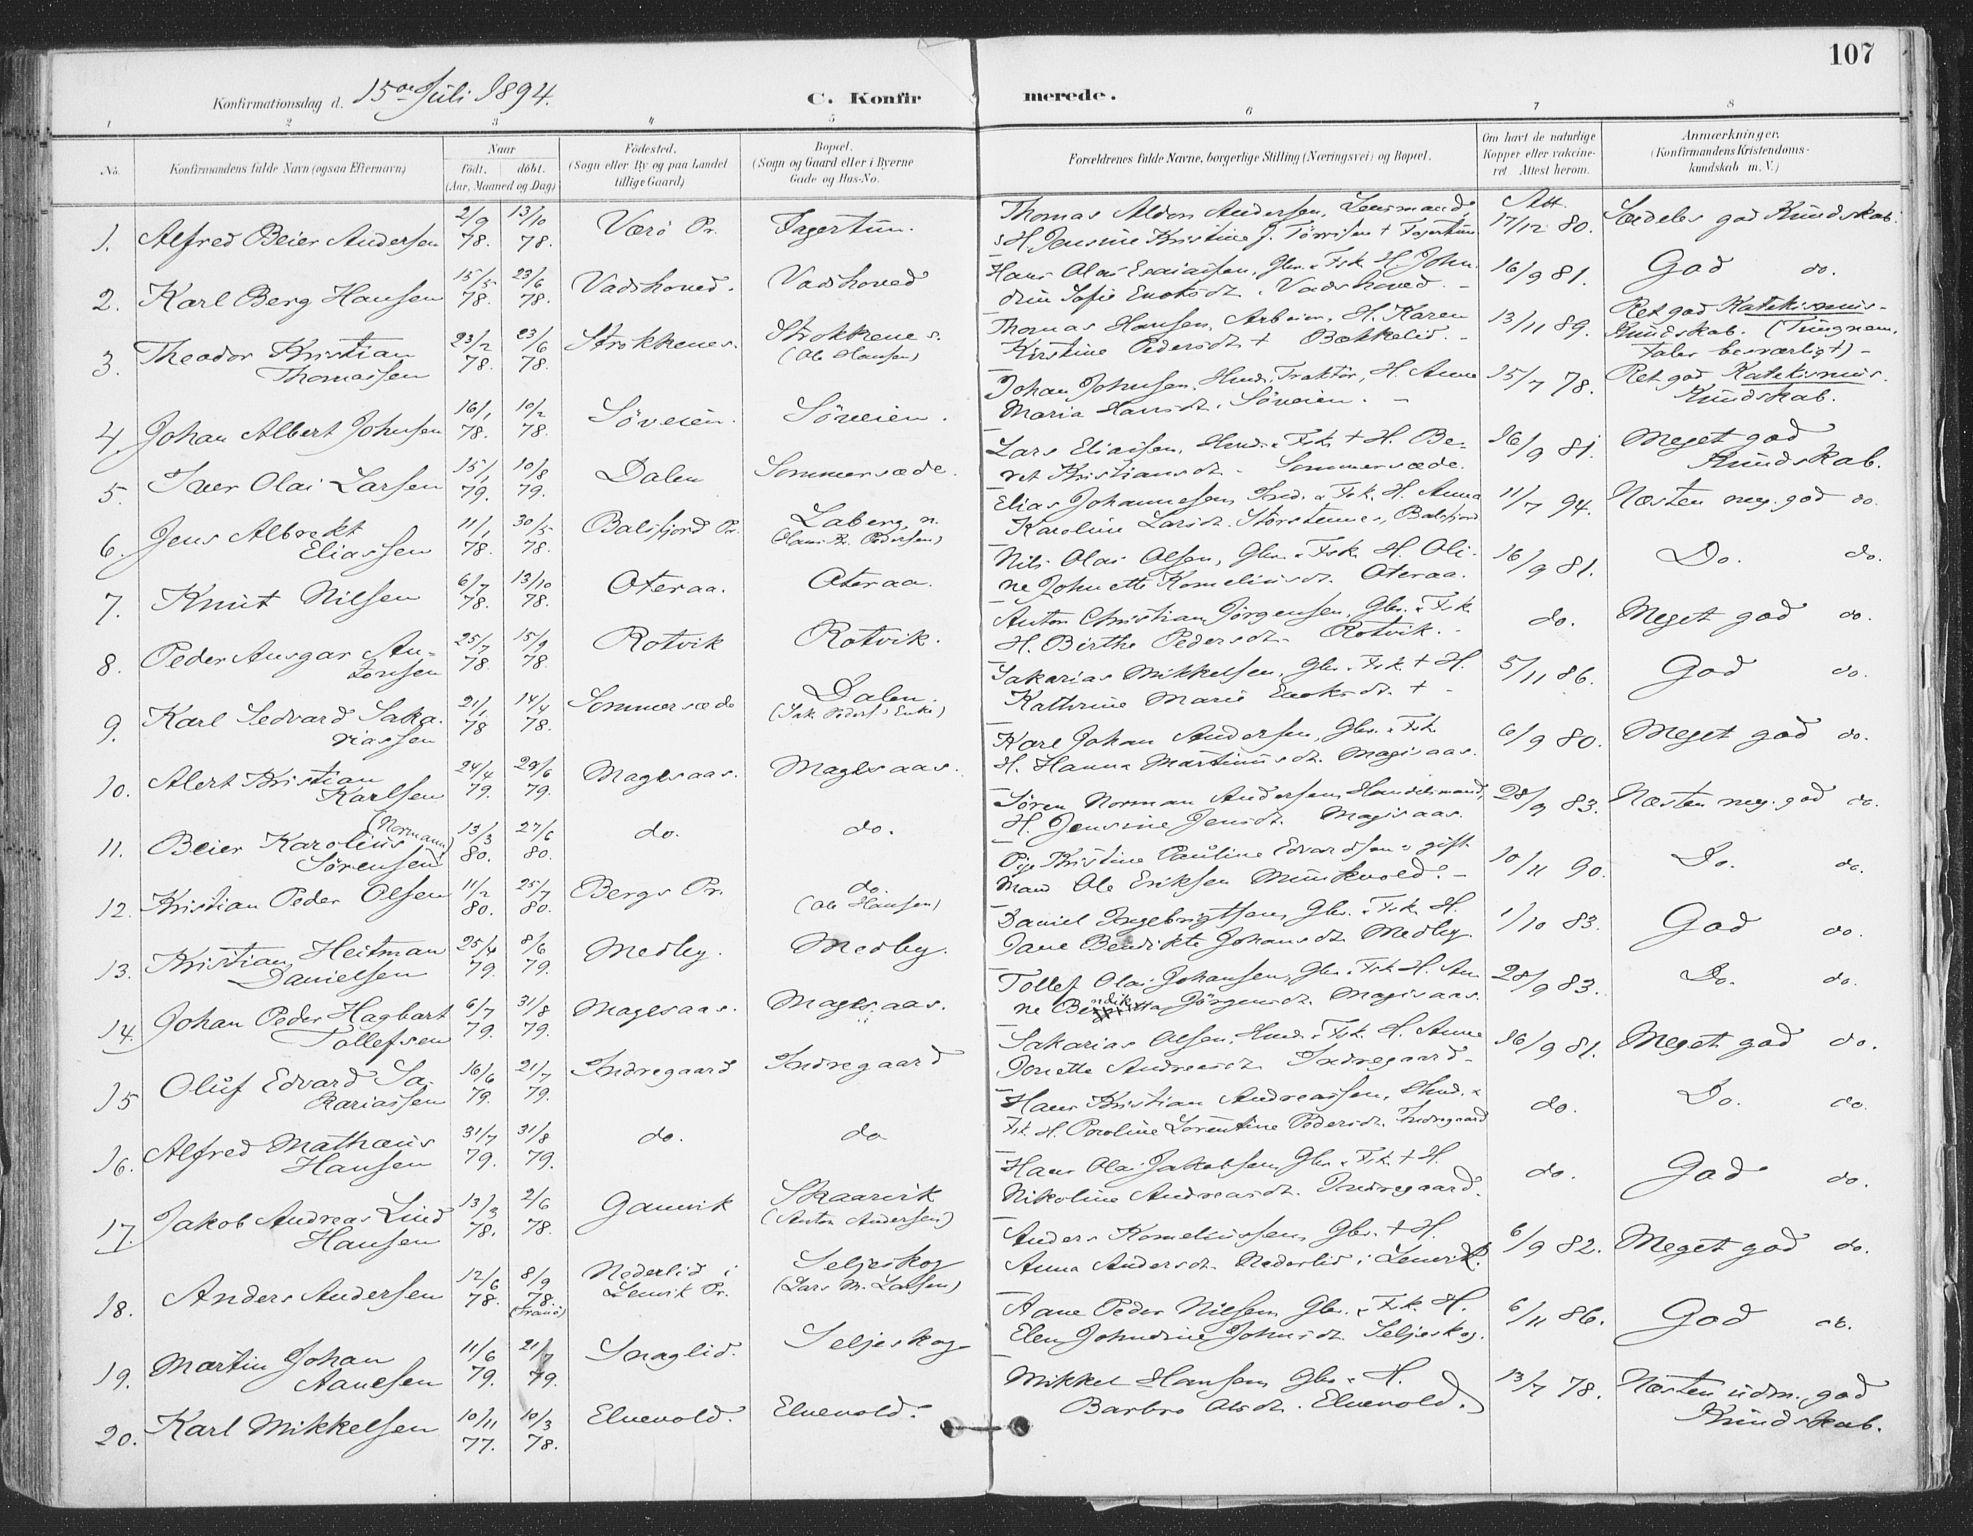 107
Konfirmationsdag d. 15de Juli 1894.
C. Konfirmerede.
1 2 3 4 5 6 7 8
No. Konfirmandens fulde Navn (ogsaa Efternavn) Naar født. døbt. (Aar, Maaned og Dag) Fødested. (Sogn eller By og paa Landet tillige Gaard) Bopæl. (Sogn og Gaard eller i Byerne Gade og Hus-No. Forældrenes fulde Navne, borgerlige Stilling (Næringsvei) og Bopæl. Om havt de naturlige Kopper eller vakcineret. Attest herom. Anmærkninger. (Konfirmandens Kristendomskundskab m. V.)
1. Alfred Beier Andersen 2/9 78. 13/10 78. Værø Pr. Fagertun. Thomas Andersen, Lensmand, H. Jensine Kristine J. Tørrisen + Fagertun Att. 17/12 80. Særdeles god Kundskab.
2. Karl Berg Hansen 15/5 78. 23/6 78. Vadshoved. Vadshoved Hans Olai Esaiassen, Gbr. & Fsk. H. Johndine Sofie Enoksdt. Vadshoved. 16/9 81. God do.
3. Theodor Kristian Thomassen 23/2 78. 23/6 78. Strokkenes. Strokkenes. (Ole Hansen) Thomas Hansen, Arbeim. H. Karen Kirstine Pedersdt + Bækkelid. 13/11 89. Ret god Katekismis-Kundskab. (Tungnem, taler besværligt)
4. Johan Albert Johnsen 16/1 78. 10/2 78. Søveien. Søveien. Johan Johnsen, Hmd. Traktør, H. Anne Maria Hansdt. Søveien. 15/7 78. Ret god Katekismis. Kundskab.
5. Iver Olai Larsen 15/1 79. 10/8 79. Dalen Sommersæde. Lars Eliassen, Hmd. & Fsk + H. Beret Kristiansdt. Sommersæde. 16/9 81. Meget god Kundskab.
6. Jens Albrekt Eliassen 11/1 78. 30/5 78. Balsfjord Pr. Laberg, n. (Hans Pedersen) Elias Johannesen, Ind. & Fsk. H. Anna Karoline Larsdt. Storstennes, Balsfjord 11/7 94. Næsten meg. god do.
7. Knut Nilsen 6/7 78. 13/10 78. Oteraa. Oteraa. Nils Olai Olsen, Gbr. & Fsk. H. Oline Johnette Korneliusdt. Oteraa. 16/9 81. Do. do.
8. Peder Ansgar Antonsen 25/7 78. 15/9 78. Rotvik Rotvik. Anton Christian Jørgensen, Gbr. & Fsk H. Birthe Pedersdt. Rotvik. do. Meget god do.
9. Karl Sedvard Sakariassen 21/1 78 14/4 78. Sommersæde Dalen. (Isk Peders's Enke) Sakarias Mikkelsen, Gbr. & Fsk. + H. Kathrine Marie Enoksdt. + 5/11 86. God do.
10. Alert Kristian Karlsen 24/4 79. 29/6 79. Magesaas. Magesaas. Karl Johan Andersen, Gbr. & Fsk H. Hanna Martinusdt. Magisaas. 6/9 80. Meget god do.
11. Beier Karolius (Normann) Sørensen 13/3 80. 27/6 80. do. do. Søren Norman Andersen, Handelsmand, H. Jensine Jensdt. Magisaas. 28/9 83. Næsten meg. god do.
12. Kristian Peder Olsen 11/2 80. 25/7 80. Bergs Pr. do. (Ole Hansen) Pige Kristine Pauline Edvardsen & gift Mand Ole Eriksen Munkvold. 10/11 90. Do. do.
13. Kristian Heitman Danielsen 25/4 79. 8/6 79. Medby. Medby. Daniel Ingebrigtsen, Gbr. & Fsk. H. Jane Bendikte Johansdt. Medby. 1/10 83. God do.
14. Johan Peder Hagbart Tollefsen 6/7 79. 31/8 79. Magesaas. Magesaas. Tollef Olai Johansen, Gbr. & Fsk. H. Anne Bendikta Jørgensdt. Magisaas. 28/9 83. Do. do.
15 Oluf Edvard Sakariassen 16/6 79. 21/7 79. Indregaard Indregaard Sakarias Olsen, Hmd. & Fsk. H. Anne Jonette Andreasdt. Indregaard. 16/9 81. Meget god do.
16. Alfred Mathæus Hansen 31/7 79. 31/8 79. do. do Hans Kristian Andreassen, Hmd. & Fsk. H. Poroline Lorentine Pedersdt. Indregaard do. Do. do.
17. Jakob Andreas Lind Hansen 13/3 78. 2/6 78. Gamvik Skaarvik (Anton Andersen) Hans Olai Jakobsen, Gbr. & Fsk. + H. Nikoline Andreasdt. Indregaard. do. God do.
18. Anders Andersen 12/6 78. 8/9 78. (Tranø) Nederlid i Lenvik Pr. Seljeskog (Lars M. Larsen) Anders Korneliussen, Gbr. + H. Anna Andersdt. Nederlid i Lenvik. 6/9 82. Meget god do.
19. Martin Johan Aanesen 11/6 79. 21/7 79. Snaglid. Seljeskog Aane Peder Nilsen, Gbr. & Fsk. H. Elen Johndine Johnsdt. Seljeskog. 6/11 86. God do.
20. Karl Mikkelsen 10/11 77. 10/3 78. Elvevold. Elvevold. Mikkel Hansen, Gbr. & H. Barbro Olsdt. Elvevold. 13/7 78. Næsten udm. god Kundskab.